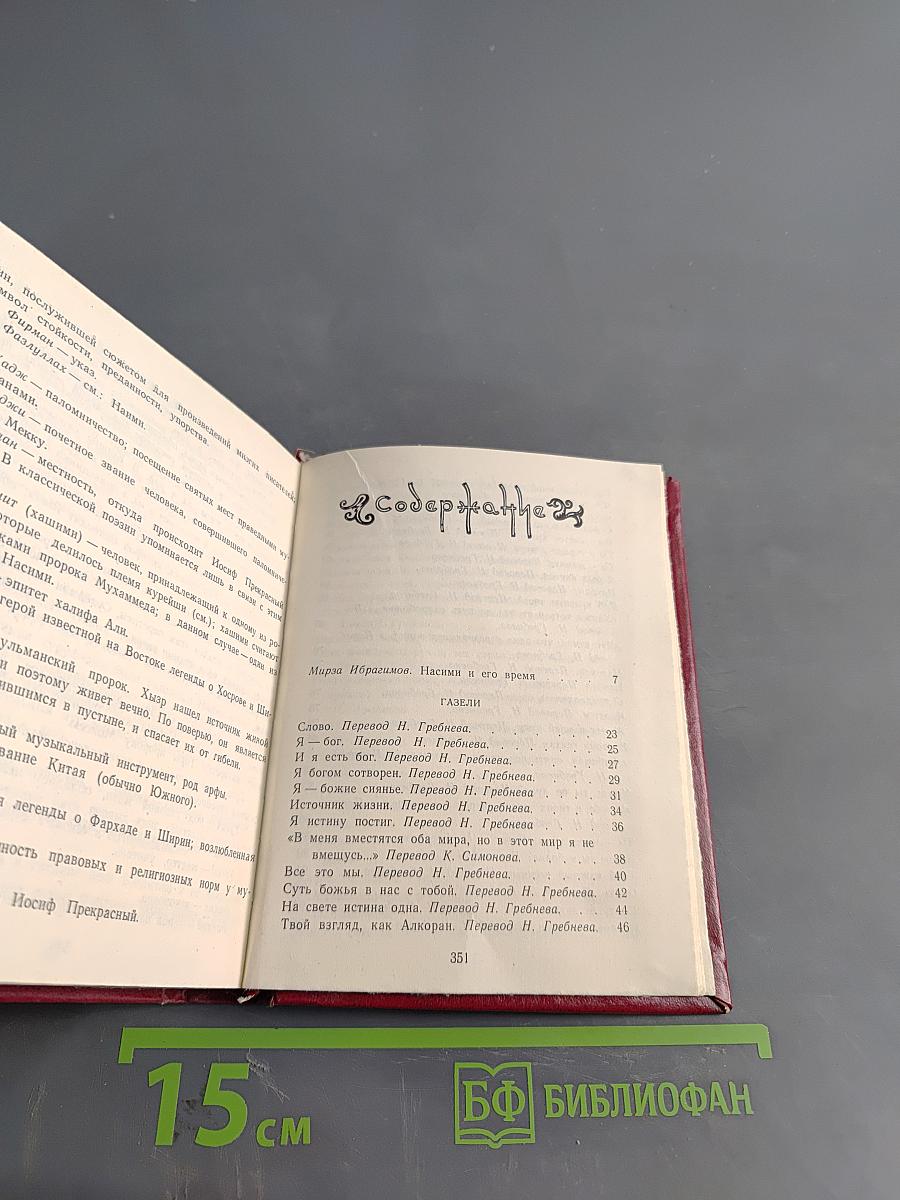 послужившей сюжетом для произведений многих писателей;
стойкости, преданности, упорства.
Фирман — указ.
Фазуллах — см.: Наими.
— паломничество; посещение святых мест правоверными му-
— почетное звание человека, совершившего паломниче-
Мекку.
— местность, откуда происходит Иосиф Прекрасный
В классической поэзии упоминается лишь в связи с этим
(хашими) — человек, принадлежащий к одному из ро-
которые делилось племя курейши (см.); хашими считают
пророка Мухаммеда; в данном случае — один из
Насими.
эпитет халифа Али.
герой известной на Востоке легенды о Хосрове и Ши-
пророк. Хызр нашел источник живой
и поэтому живет вечно. По поверью, он является
в пустыне, и спасает их от гибели.
музыкальный инструмент, род арфы.
Китая (обычно Южного).
легенды о Фархаде и Ширин; возлюбленная
правовых и религиозных норм у му-
Иосиф Прекрасный.
Содержание
Мирза Ибрагимов. Насими и его время . . . . 7
ГАЗЕЛИ
Слово. Перевод Н. Гребнева. . . . . . . . 23
Я — бог. Перевод Н. Гребнева. . . . . . . 25
И я есть бог. Перевод Н. Гребнева. . . . . 27
Я богом сотворен. Перевод Н. Гребнева. . . . 29
Я — божие сиянье. Перевод Н. Гребнева . . . 31
Источник жизни. Перевод Н. Гребнева. . . . 34
Я истину постиг. Перевод Н. Гребнева . . . . 36
«В меня вместятся оба мира, но в этот мир я не
вмещусь...» Перевод К. Симонова. . . . . . 38
Все это мы. Перевод Н. Гребнева. . . . . . 40
Суть божья в нас с тобой. Перевод Н. Гребнева. 42
На свете истина одна. Перевод Н. Гребнева. . . 44
Твой взгляд, как Алкоран. Перевод Н. Гребнева. 46
351
15 см
БФ БИБЛИОФАН